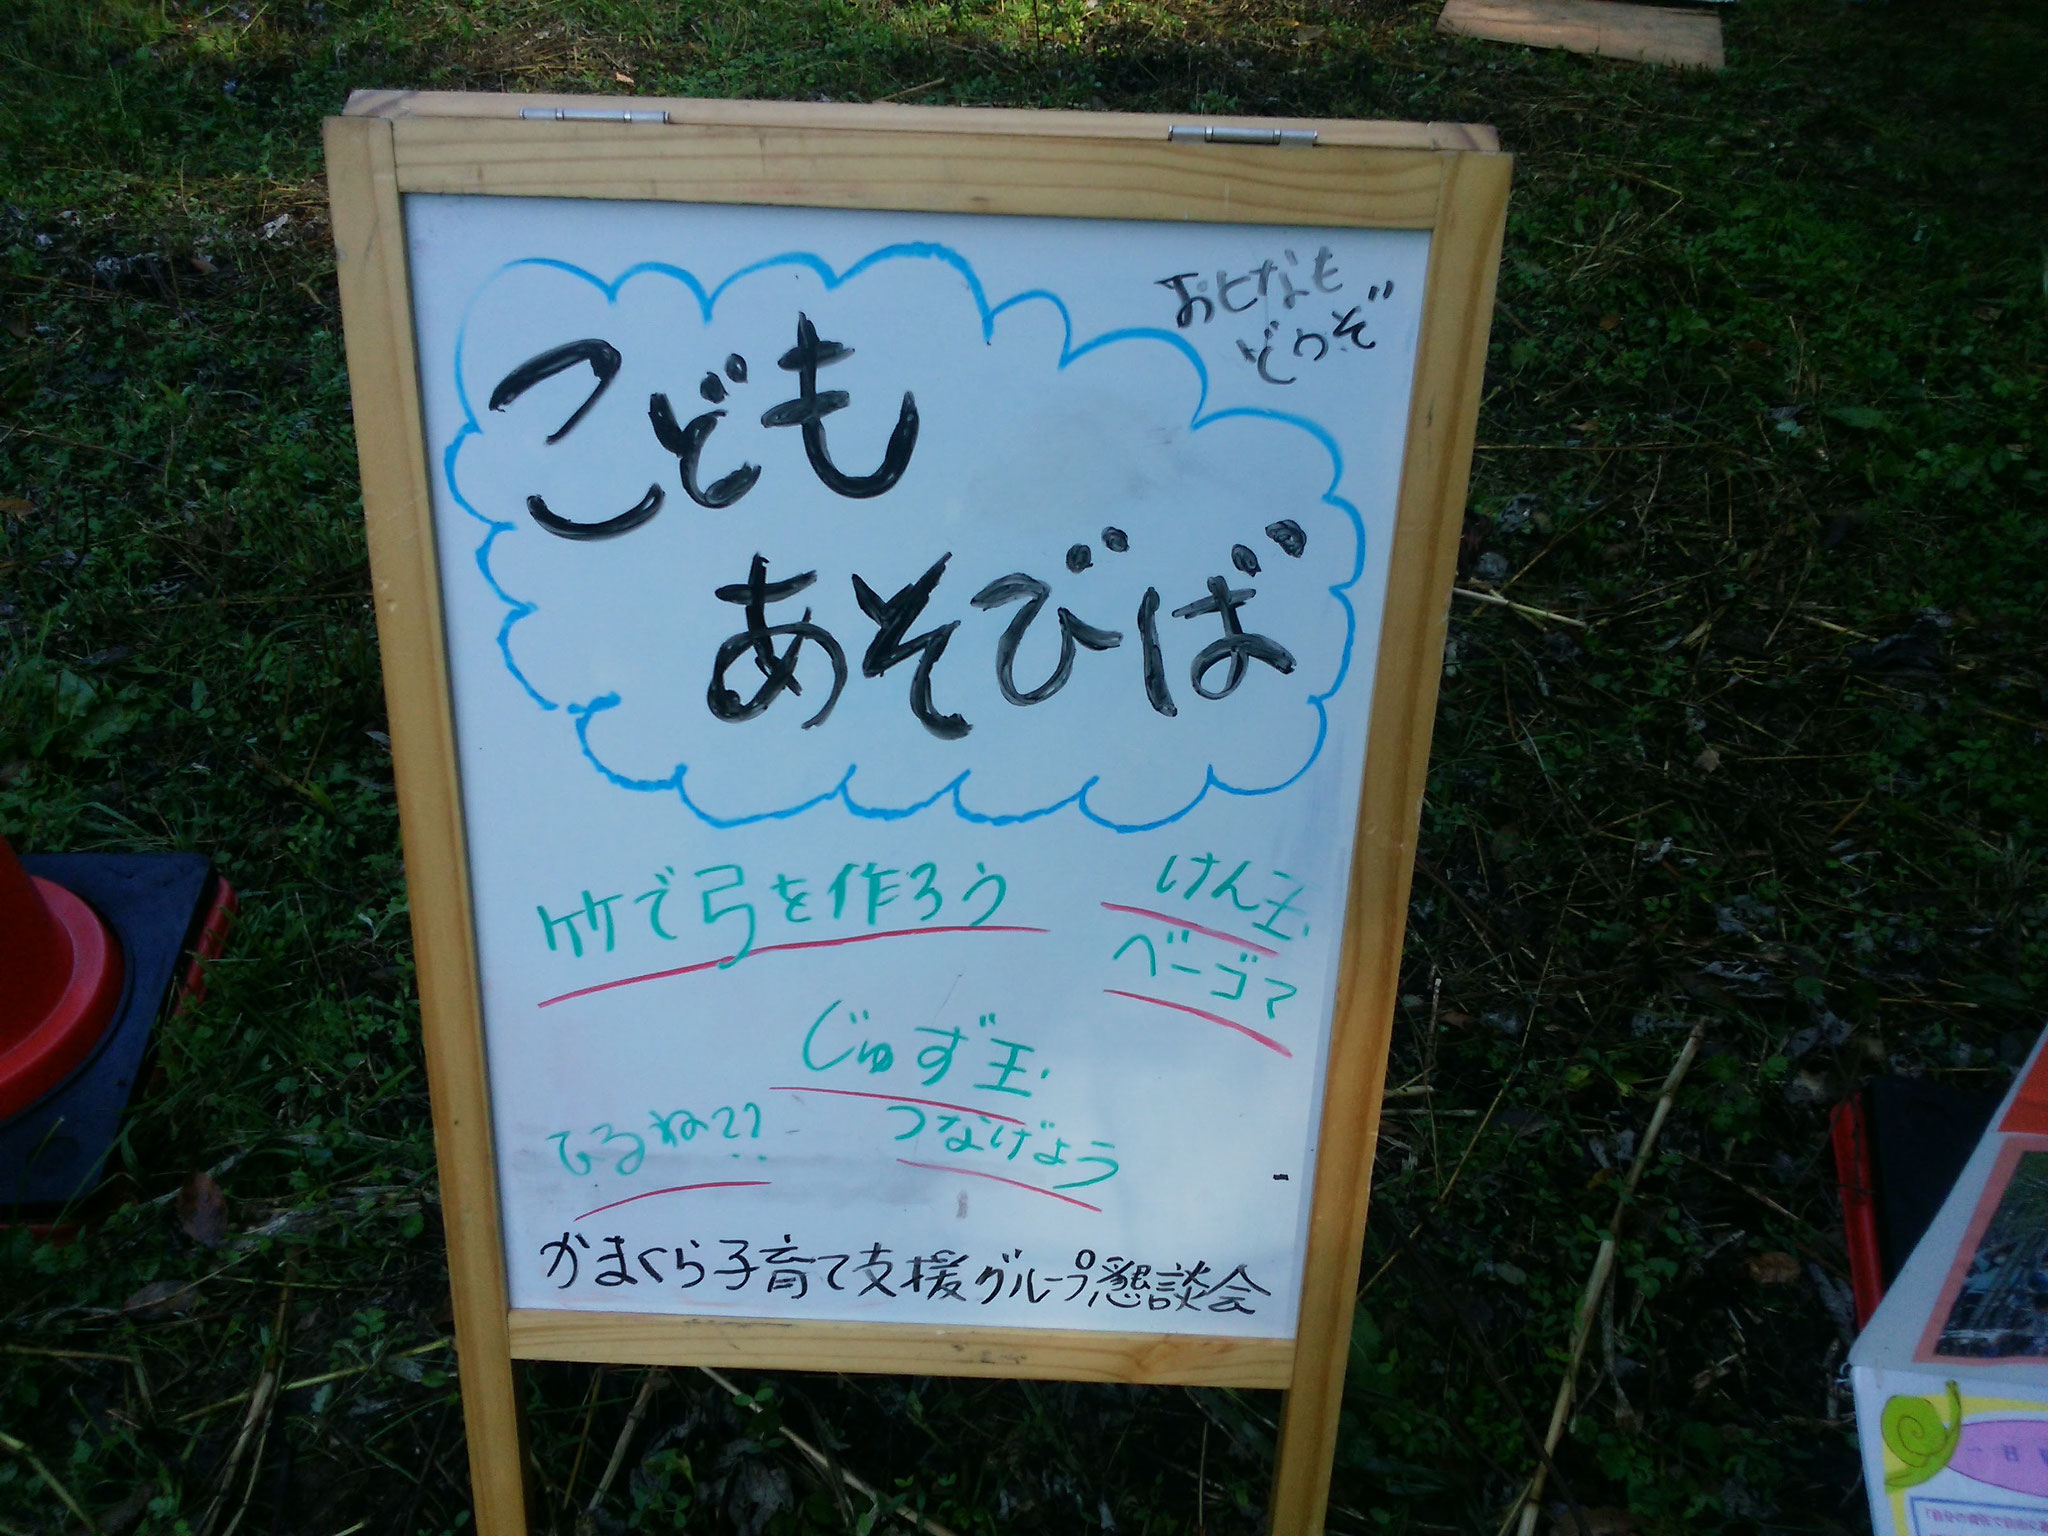 おとなも
どうぞ
こども
あそびば
竹で弓を作ろう
けん玉
ベーゴマ
じゅず玉
つなげよう
てるね??
かまくら子育て支援グループ懇談会
一日